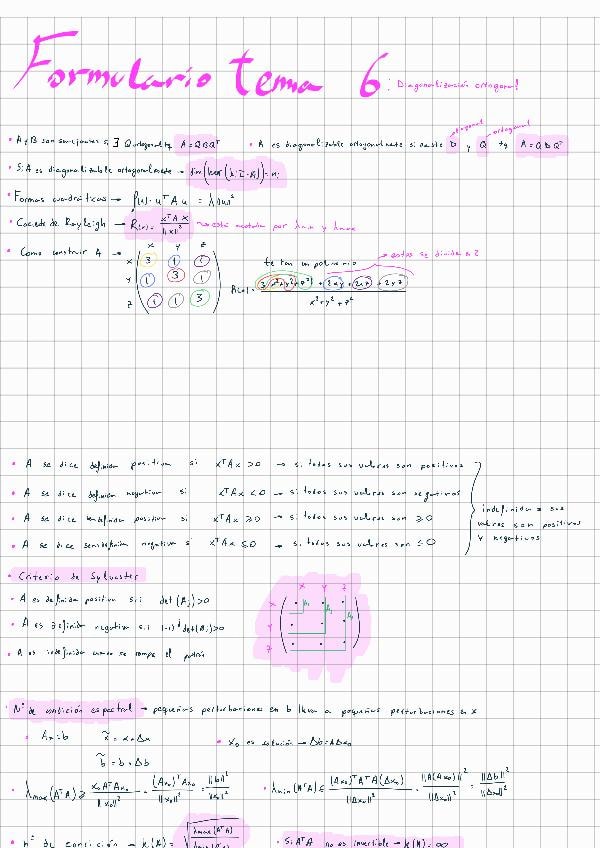 Formulario tema 6: Diagonalización ortogonal
diagonal ortogonal
• A y B son semejantes si ∃ Q ortogonal tq A = QBQᵀ • A es diagonalizable ortogonalmente si existe D y Q tq A = QDQᵀ
• Si A es diagonalizable ortogonalmente → dim(ker(λᵢI-A)) = nᵢ
• Formas cuadráticas → f(u) = uᵀAu = λ||u||²
• Cociente de Rayleigh → R(x) = xᵀAx / ||x||² → está acotada por λmin y λmax
• Como construir A →
x y z
x 3 1 1
y 1 3 1
z 1 1 3
te dan un polinomio
estos se dividen 2
R(x) = 3(x²+y²+z²) + 2xy + 2xz + 2yz
x²+y²+z²
• A se dice definida positiva si xᵀAx > 0 → si todos sus valores son positivos
• A se dice definida negativa si xᵀAx < 0 → si todos sus valores son negativos
• A se dice semidefinida positiva si xᵀAx ≥ 0 → si todos sus valores son ≥ 0
• A se dice semidefinida negativa si xᵀAx ≤ 0 → si todos sus valores son ≤ 0
indefinida = sus
valores son positivos
y negativos
• Criterio de Sylvester
• A es definida positiva si: det(Aⱼ) > 0
• A es definida negativa si (-1)ʲ det(Aⱼ) > 0
• A es indefinida cuando se rompe el patrón
x y z
x A₁
y A₂
z A₃
• Nº de condición espectral → pequeñas perturbaciones en b lleva a pequeñas perturbaciones en x
• Ax = b x̃ = x + Δx • x₀ es solución → Δb = AΔx₀
b̃ = b + Δb
• λmax(AᵀA) ≥ x₀AᵀAx₀ / ||x₀||² = (Ax₀)ᵀAx₀ / ||x₀||² = ||b||² / ||x₀||² • λmin(AᵀA) ≤ (Δx₀)ᵀAᵀA(Δx₀) / ||Δx₀||² = ||A(Δx₀)||² / ||Δx₀||² = ||Δb||² / ||Δx₀||²
• nº de condición → k(A) = √(λmax(AᵀA) / λmin(AᵀA)) • Si AᵀA no es invertible → k(A) = ∞